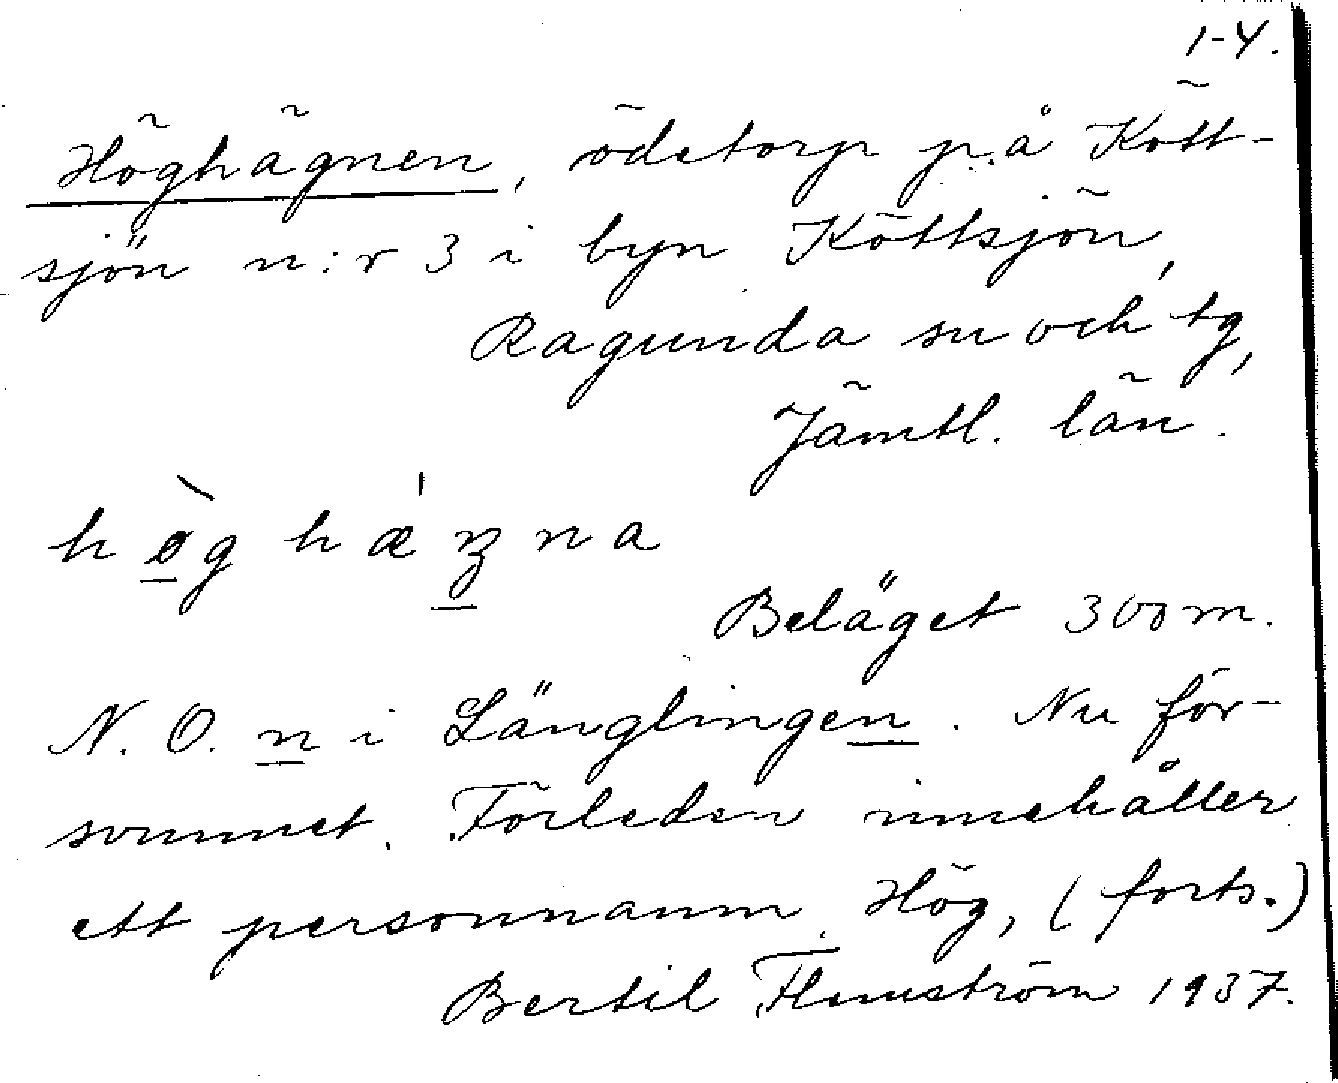 1-4.
Höghägnen, ödetorp på Kött-
sjön n:r 3 i byn Köttsjön,
Ragunda sn och tg,
Jämtl. län.
hø̀g hǽʒna
Beläget 300 m.
N.O. n i Länglingen. Nu för-
svunnet. Förleden innehåller
ett personnamn Hög, (forts.)
Bertil Flemström 1937.